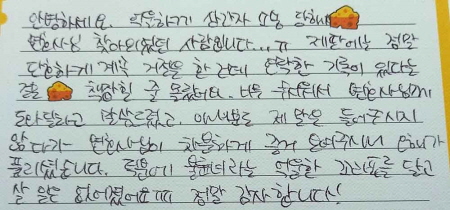 안녕하세요. 억울하게 삼각자 도형 당해
변호사님 찾아뵈었던 사람입니다..ㅠ 제 딴에는 정말
도형하게 계속 거절을 한 건데 연락한 기록이 있다는
걸로 책잡힐 줄 몰랐어요. 너무 무서워서 변호사님께
도와달라고 말씀드렸고, 아내분도 제 말은 들어주시지
않다가 변호사님이 차분하게 증거 모아주시니 오해가
풀리셨습니다. 덕분에 불륜녀라는 억울한 꼬리표를 달고
살 일은 없어졌어요ㅠㅠ 정말 감사합니다!